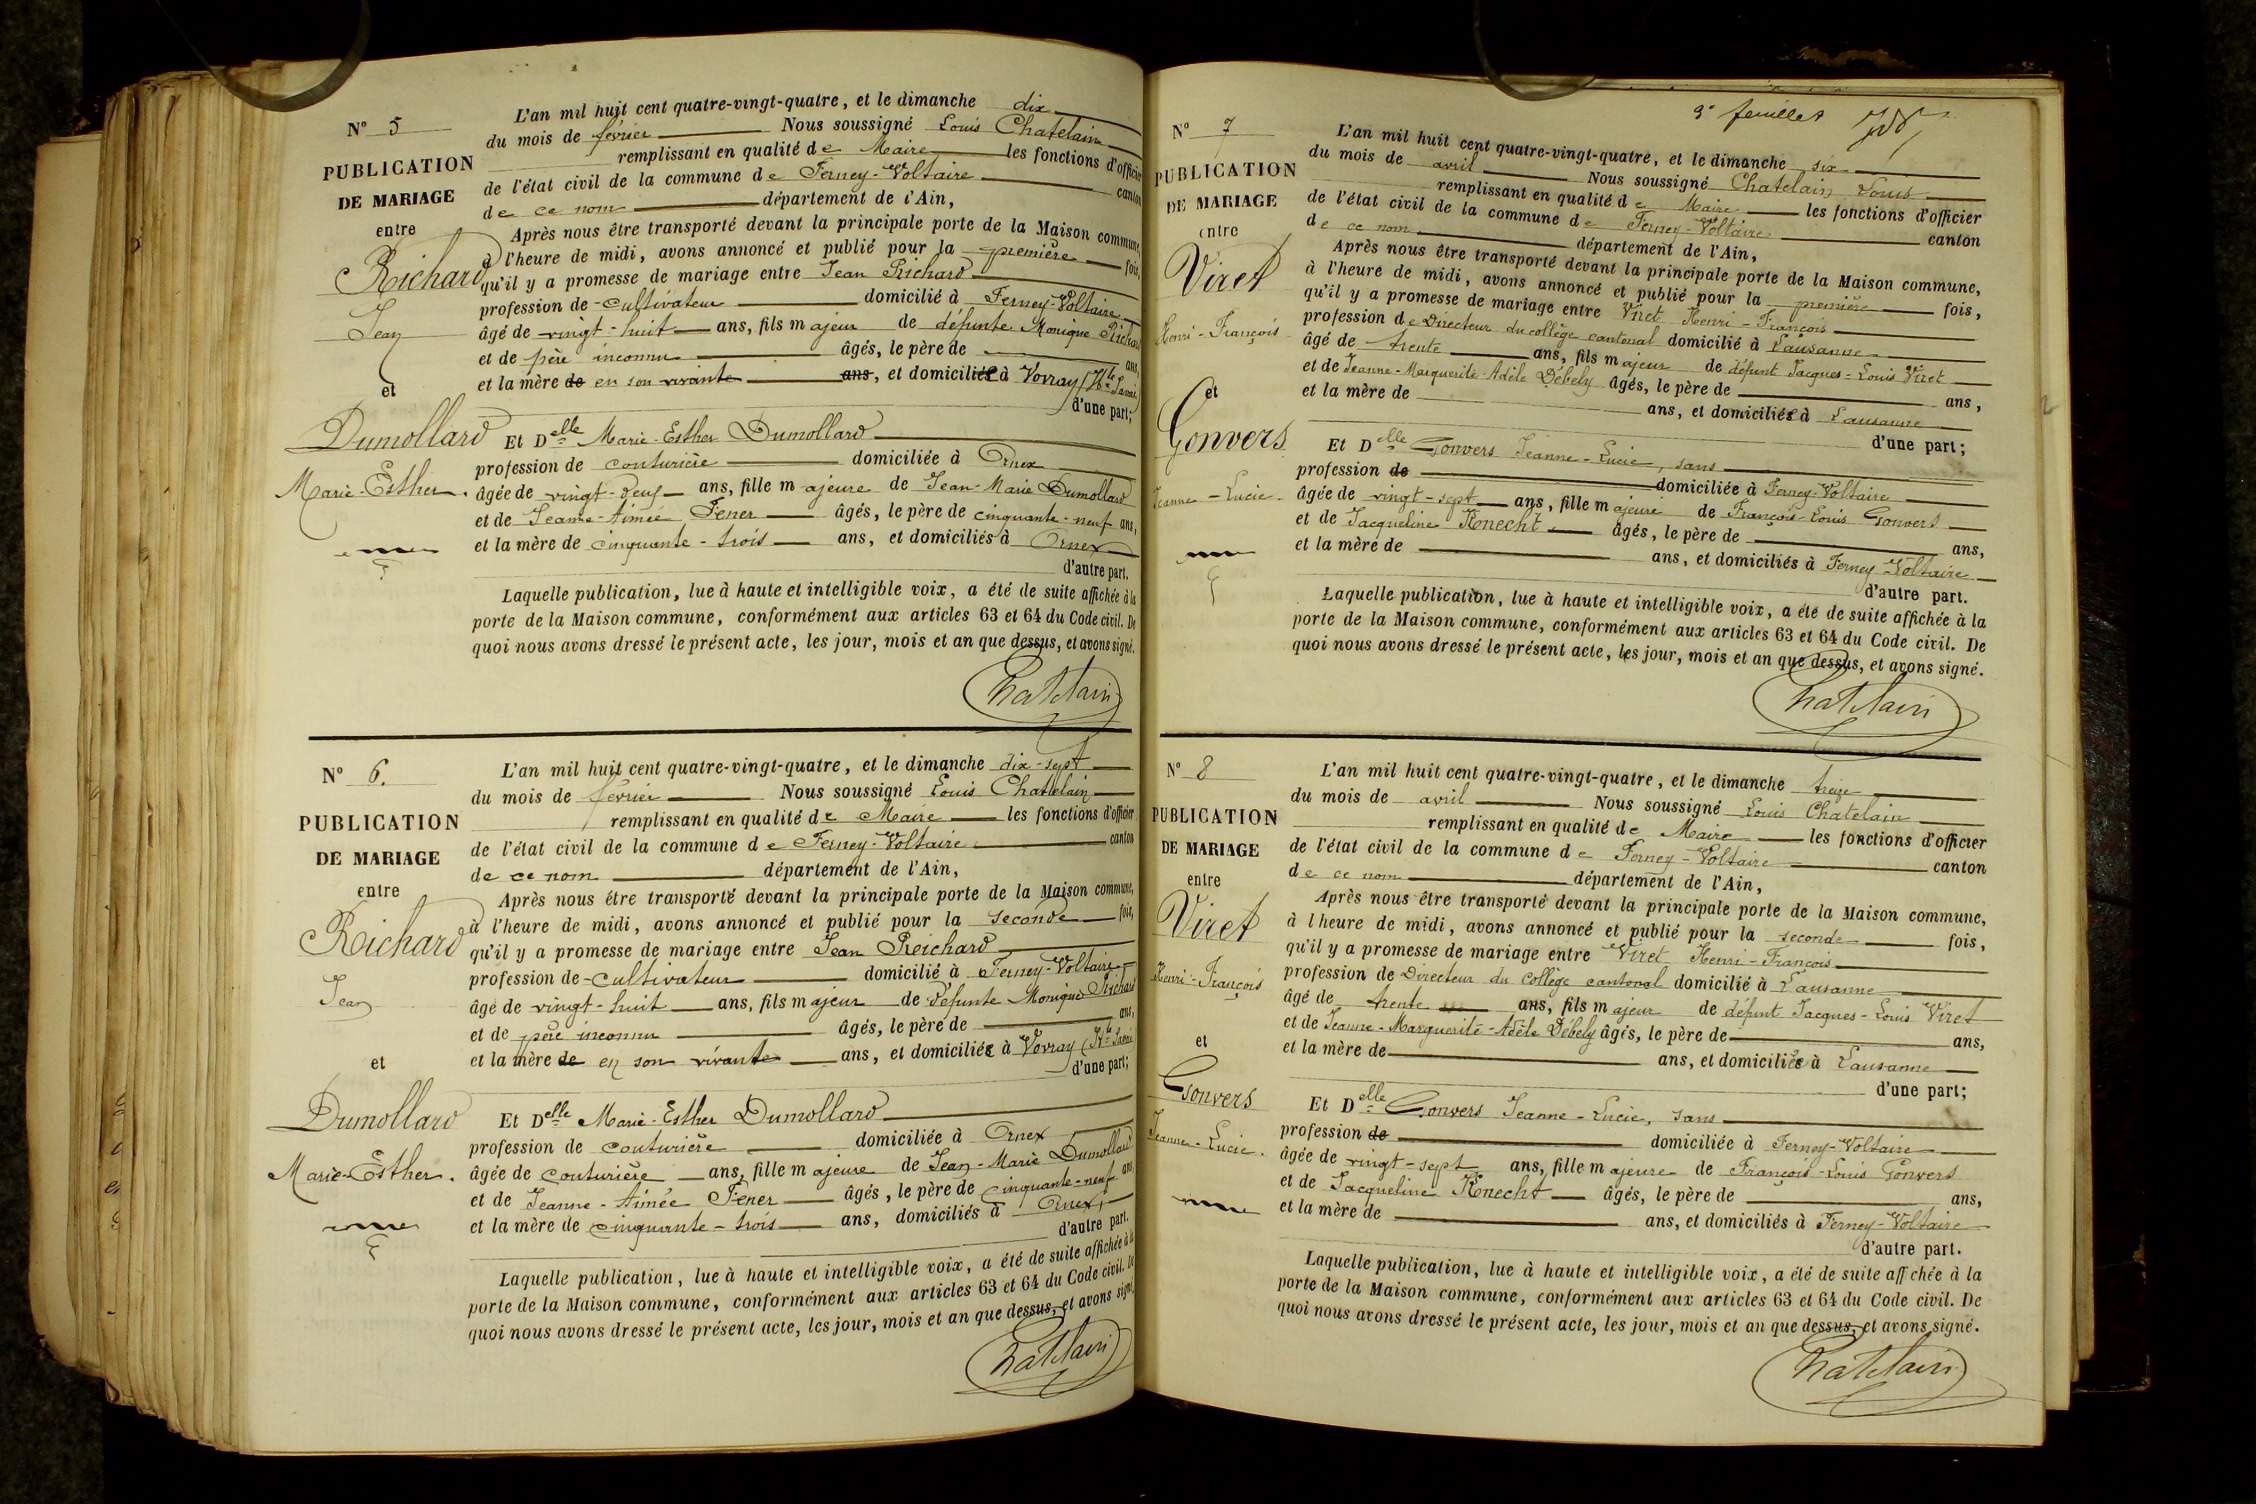 N° 5
PUBLICATION
DE MARIAGE
entre
Richard
Jean
et
Dumollard
Marie-Esther.
L'an mil huit cent quatre-vingt-quatre, et le dimanche dix
du mois de février Nous soussigné Louis Chatelain
remplissant en qualité de Maire les fonctions d'officier
de l'état civil de la commune de Ferney-Voltaire canton
de ce nom département de l'Ain,
Après nous être transporté devant la principale porte de la Maison commune,
à l'heure de midi, avons annoncé et publié pour la première fois,
qu'il y a promesse de mariage entre Jean Richard
profession de cultivateur domicilié à Ferney-Voltaire
âgé de vingt-huit ans, fils majeur de défunte Monique Richard
et de père inconnu âgés, le père de ans,
et la mère de en son vivante ans, et domiciliée à Vovray (Hte Savoie)
d'une part;
Et Delle Marie-Esther Dumollard
profession de couturière domiciliée à Ornex
âgée de vingt-neuf ans, fille majeure de Jean-Marie Dumollard
et de Jeanne-Aimée Fener âgés, le père de cinquante-neuf ans,
et la mère de cinquante-trois ans, et domiciliés à Ornex
d'autre part.
Laquelle publication, lue à haute et intelligible voix, a été de suite affichée à la
porte de la Maison commune, conformément aux articles 63 et 64 du Code civil. De
quoi nous avons dressé le présent acte, les jour, mois et an que dessus, et avons signé.
Chatelain
N° 6.
PUBLICATION
DE MARIAGE
entre
Richard
Jean
et
Dumollard
Marie-Esther.
L'an mil huit cent quatre-vingt-quatre, et le dimanche dix-sept
du mois de février Nous soussigné Louis Chatelain
remplissant en qualité de Maire les fonctions d'officier
de l'état civil de la commune de Ferney-Voltaire canton
de ce nom département de l'Ain,
Après nous être transporté devant la principale porte de la Maison commune,
à l'heure de midi, avons annoncé et publié pour la seconde fois,
qu'il y a promesse de mariage entre Jean Reichard
profession de cultivateur domicilié à Ferney-Voltaire
âgé de vingt-huit ans, fils majeur de défunte Monique Richard
et de père inconnu âgés, le père de ans,
et la mère de en son vivante ans, et domiciliée à Vovray (Hte Savoie)
d'une part;
Et Delle Marie-Esther Dumollard
profession de couturière domiciliée à Ornex
âgée de couturière ans, fille majeure de Jean-Marie Dumollard
et de Jeanne-Aimée Fener âgés, le père de cinquante-neuf ans,
et la mère de cinquante-trois ans, domiciliés à Ornex,
d'autre part.
Laquelle publication, lue à haute et intelligible voix, a été de suite affichée à la
porte de la Maison commune, conformément aux articles 63 et 64 du Code civil. De
quoi nous avons dressé le présent acte, les jour, mois et an que dessus, et avons signé.
Chatelain
3e feuillet
N° 7
PUBLICATION
DE MARIAGE
entre
Viret
Henri-François
et
Gonvers
Jeanne-Lucie.
L'an mil huit cent quatre-vingt-quatre, et le dimanche six
du mois de avril Nous soussigné Chatelain Louis
remplissant en qualité de Maire les fonctions d'officier
de l'état civil de la commune de Ferney-Voltaire canton
de ce nom département de l'Ain,
Après nous être transporté devant la principale porte de la Maison commune,
à l'heure de midi, avons annoncé et publié pour la première fois,
qu'il y a promesse de mariage entre Viret Henri-François
profession de Directeur du collège cantonal domicilié à Lausanne
âgé de trente ans, fils majeur de défunt Jacques-Louis Viret
et de Jeanne-Marguerite-Adèle Débely âgés, le père de ans,
et la mère de ans, et domiciliée à Lausanne
d'une part;
Et Delle Gonvers Jeanne-Lucie, sans
profession de domiciliée à Ferney-Voltaire
âgée de vingt-sept ans, fille majeure de François-Louis Gonvers
et de Jacqueline Knecht âgés, le père de ans,
et la mère de ans, et domiciliés à Ferney-Voltaire
d'autre part.
Laquelle publication, lue à haute et intelligible voix, a été de suite affichée à la
porte de la Maison commune, conformément aux articles 63 et 64 du Code civil. De
quoi nous avons dressé le présent acte, les jour, mois et an que dessus, et avons signé.
Chatelain
N° 8
PUBLICATION
DE MARIAGE
entre
Viret
Henri-François
et
Gonvers
Jeanne-Lucie.
L'an mil huit cent quatre-vingt-quatre, et le dimanche treize
du mois de avril Nous soussigné Louis Chatelain
remplissant en qualité de Maire les fonctions d'officier
de l'état civil de la commune de Ferney-Voltaire canton
de ce nom département de l'Ain,
Après nous être transporté devant la principale porte de la Maison commune,
à l'heure de midi, avons annoncé et publié pour la seconde fois,
qu'il y a promesse de mariage entre Viret Henri-François
profession de Directeur du Collège cantonal domicilié à Lausanne
âgé de trente ans, fils majeur de défunt Jacques-Louis Viret
et de Jeanne-Marguerite-Adèle Débely âgés, le père de ans,
et la mère de ans, et domiciliée à Lausanne
d'une part;
Et Delle Gonvers Jeanne-Lucie, sans
profession de domiciliée à Ferney-Voltaire
âgée de vingt-sept ans, fille majeure de François-Louis Gonvers
et de Jacqueline Knecht âgés, le père de ans,
et la mère de ans, et domiciliés à Ferney-Voltaire
d'autre part.
Laquelle publication, lue à haute et intelligible voix, a été de suite affichée à la
porte de la Maison commune, conformément aux articles 63 et 64 du Code civil. De
quoi nous avons dressé le présent acte, les jour, mois et an que dessus, et avons signé.
Chatelain